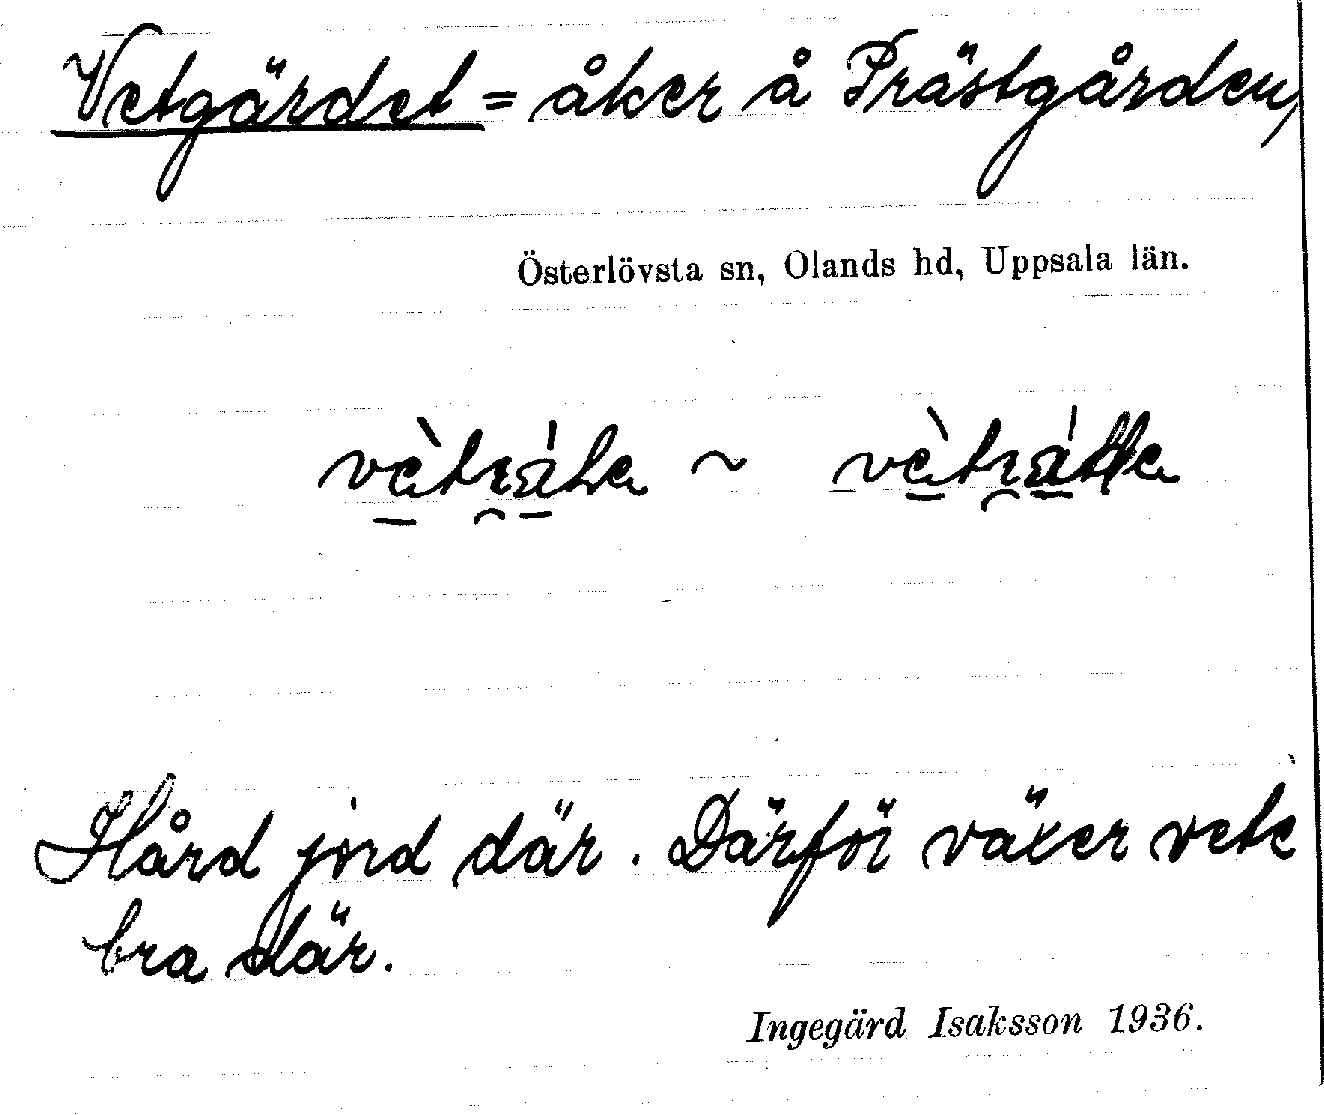 Vetgärdet = åker å Prästgården,
Österlövsta sn, Olands hd, Uppsala län.
~
Hård jord där. Därför växer vete
bra där.
Ingegärd Isaksson 1936.